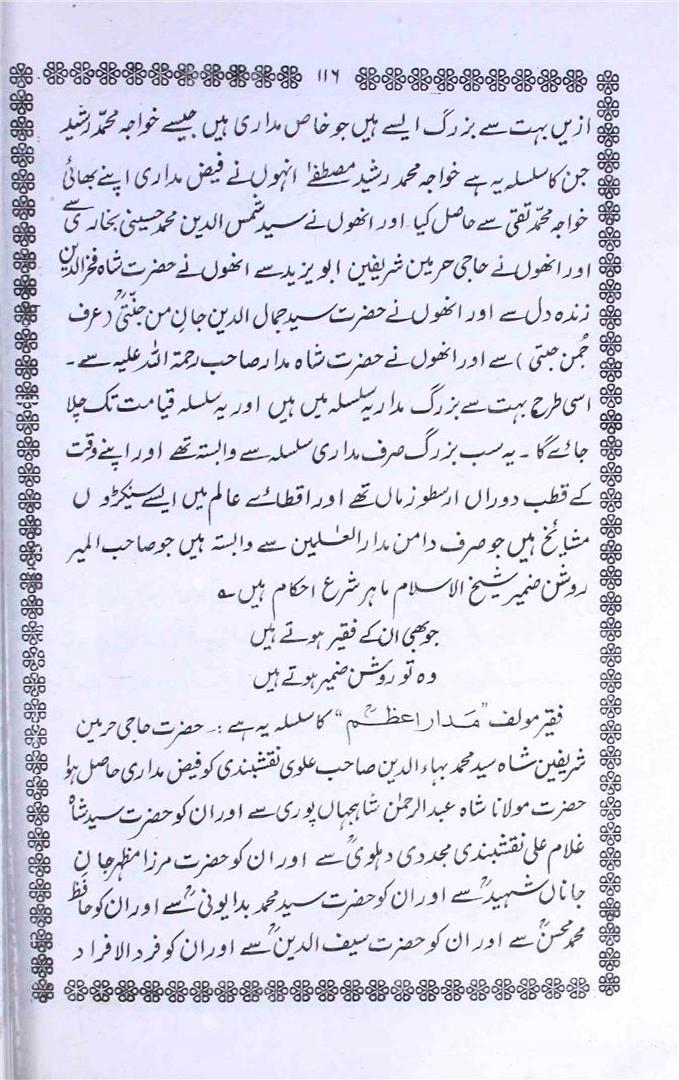 ۱۱۶
ازیں بہت سے بزرگ ایسے ہیں جو خاص مداری ہیں جیسے خواجہ محمد رشید
جن کا سلسلہ یہ ہے خواجہ محمد رشید مصطفےٰ انہوں نے فیض مداری اپنے بھائی
خواجہ محمد تقی سے حاصل کیا۔ اور انھوں نے سید شمس الدین محمد حسینی بخاری سے
اور انھوں نے حاجی حرمین شریفین ابو یزید سے انھوں نے حضرت شاہ فخر الدین
زندہ دل سے اور انھوں نے حضرت سید جمال الدین جان من جنتیؒ (عرف
جمن جتی) سے اور انھوں نے حضرت شاہ مدار صاحب رحمۃ اللہ علیہ سے۔
اسی طرح بہت سے بزرگ مداریہ سلسلہ میں ہیں اور یہ سلسلہ قیامت تک چلا
جائے گا۔ یہ سب بزرگ صرف مداری سلسلہ سے وابستہ تھے اور اپنے وقت
کے قطب دوراں ارسطو زماں تھے اور اقطائے عالم میں ایسے سینکڑوں
مشائخ ہیں جو صرف دامن مدار العٰلمین سے وابستہ ہیں جو صاحب المیر
روشن ضمیر شیخ الاسلام ماہر شرع احکام ہیں ؎
جو بھی ان کے فقیر ہوتے ہیں
وہ تو روشن ضمیر ہوتے ہیں
فقیر مولف "مدار اعظمؒ" کا سلسلہ یہ ہے :۔ حضرت حاجی حرمین
شریفین شاہ سید محمد بہاء الدین صاحب علوی نقشبندی کو فیض مداری حاصل ہوا
حضرت مولانا شاہ عبدالرحمٰن شاہجہاں پوری سے اور ان کو حضرت سید شاہ
غلام علی نقشبندی مجددی دہلویؒ سے اور ان کو حضرت مرزا مظہر جان
جاناں شہیدؒ سے اور ان کو حضرت سید محمد بدایونیؒ سے اور ان کو حافظ
محمد محسنؒ سے اور ان کو حضرت سیف الدینؒ سے اور ان کو فرد الافراد